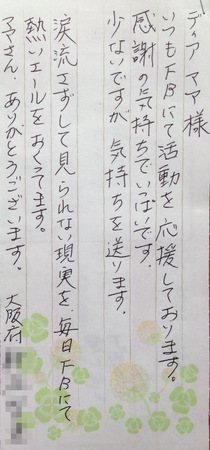 ディア ママ 様
いつもFBにて活動を応援しております。
感謝の気持ちでいっぱいです。
少ないですが、気持ちを送ります。
涙流さずして見られない現実を、毎日FBにて
熱いエールをおくってます。
ママさん、ありがとうございます。
大阪府